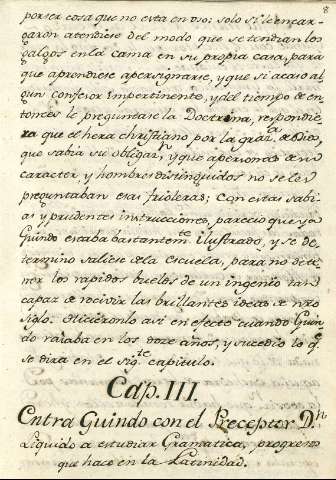 8
por ser cosa que no esta en vso: solo si le encar-
garon atendiese del modo que se tendian los
galgos en la cama en su propia casa, para
que aprendiese a persignarse, y que si acaso al
gun confesor impertinente, y del tiempo de en-
tonces le preguntase la Doctrina, respondie
ra que el hera christiano por la gra.ª de Dios,
que sabia su obligaz.n y que a personas de su
caracter y hombres distinguidos no se les
preguntaban esas frioleras; Con estas sabi-
as y prudentes instrucciones, parecio que ya
Guindo estaba bastantem.te ilustrado, y se de-
termino saliese a la escuela, para no dete-
ner los rapidos buelos de un ingenio tan
capaz de recivir las brillantes ideas de nro
siglo. Hicieronlo asi en efecto cuando Guin
do raiaba en los doze años, y sucedio lo q.e
se dira en el sig.te capitulo.
Cap. III.
Entra Guindo con el Preceptor D.n
Liquido a estudiar Gramatica, progresos
que hace en la Latinidad.